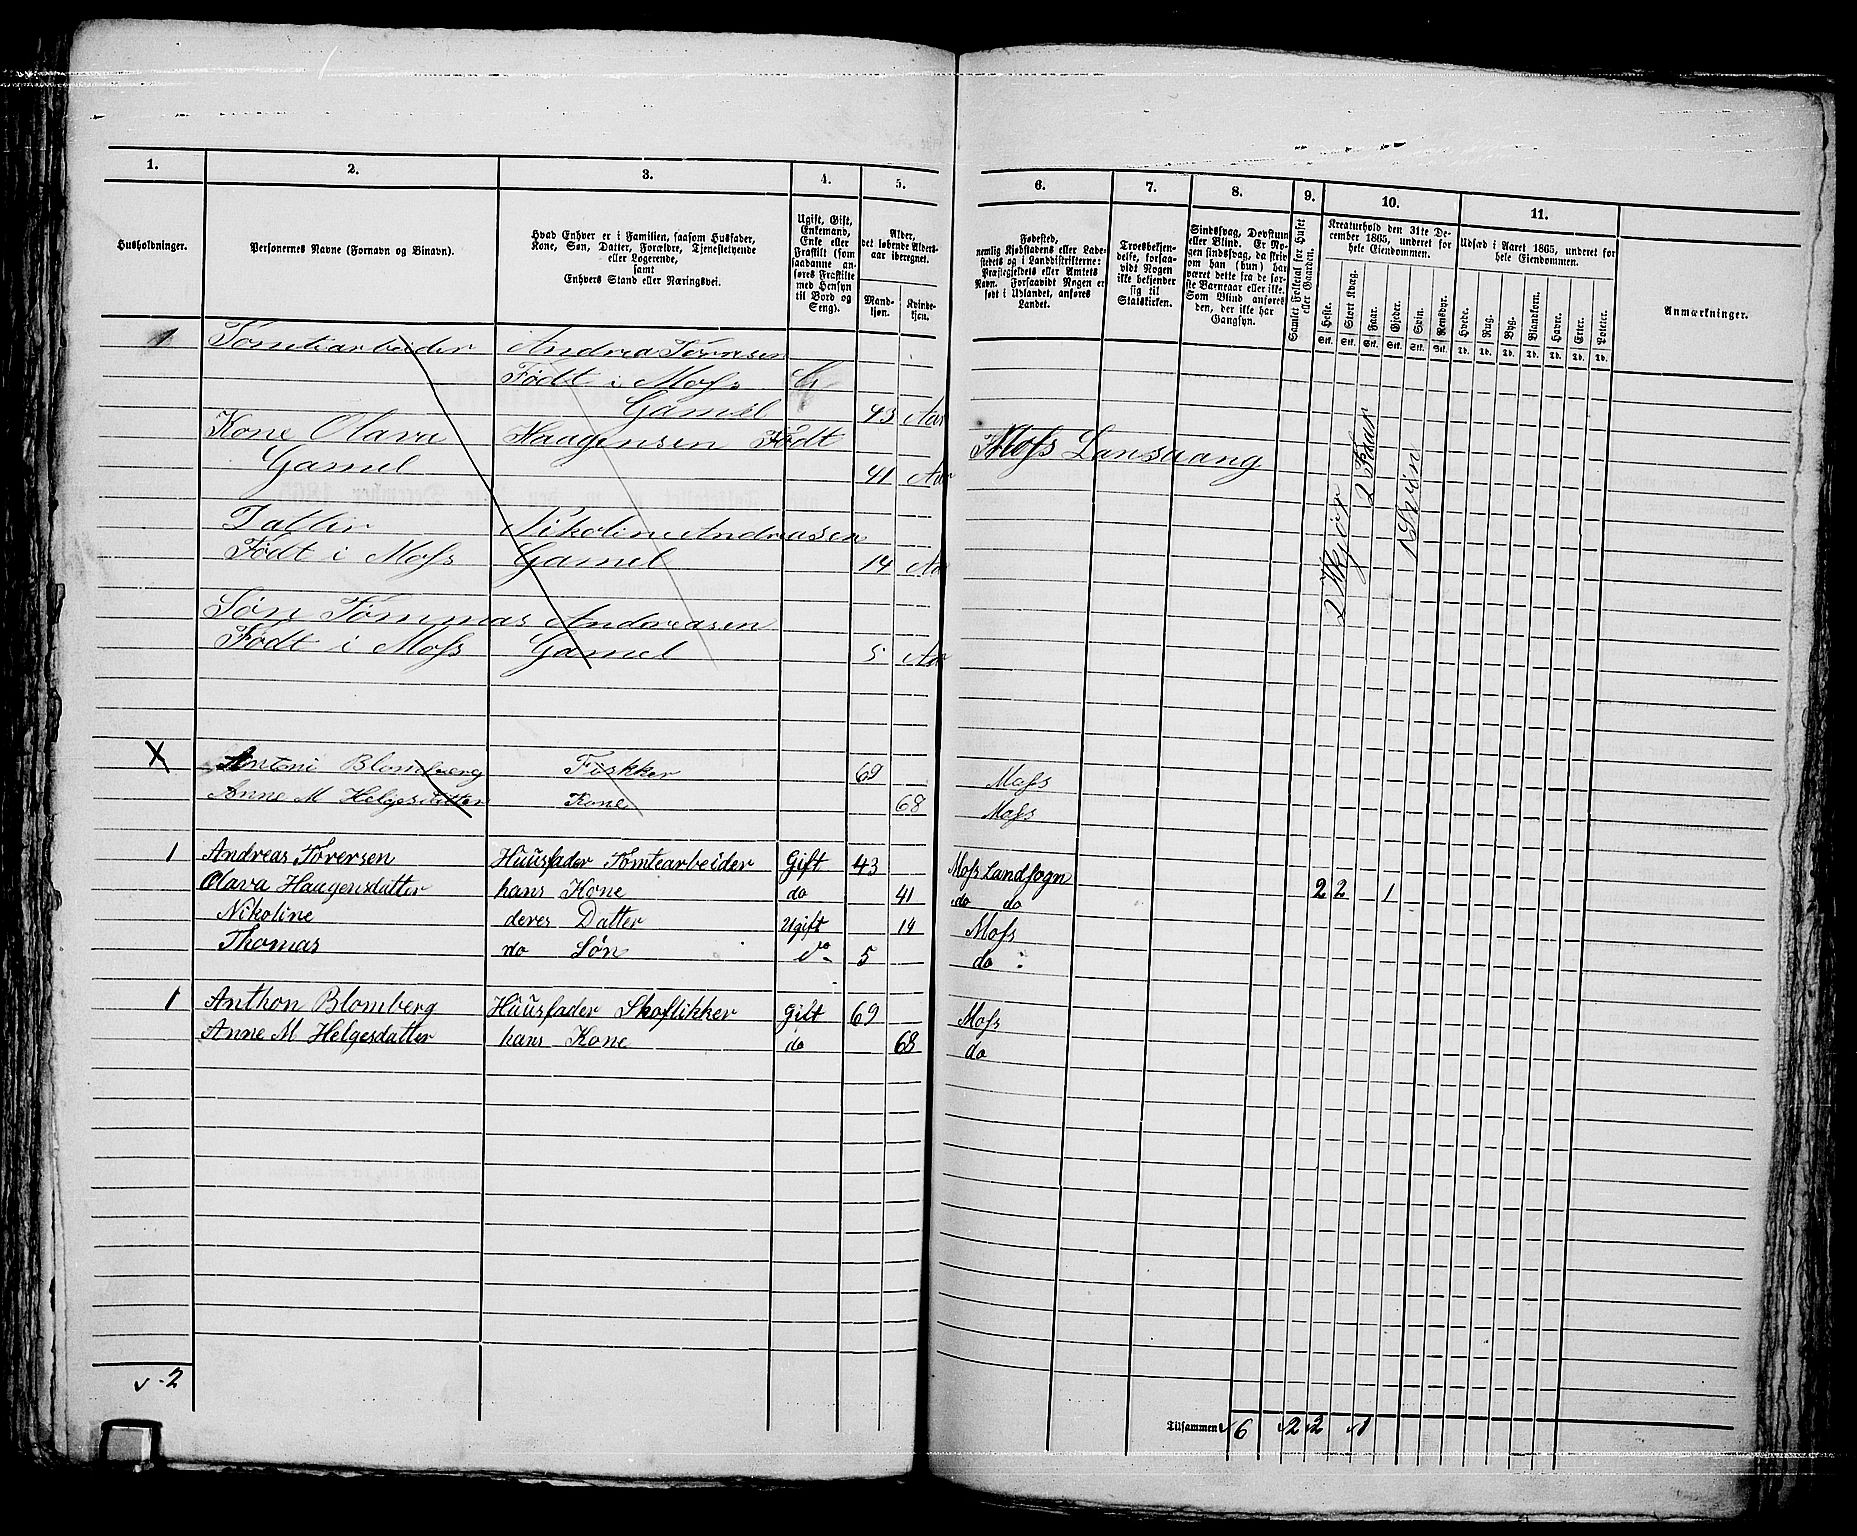 1. 2. 3. 4. 5. 6. 7. 8. 9. 10. 11.
Husholdninger.
Personernes Navne (Fornavn og Binavn).
Hvad Enhver er i Familien, saasom Husfader,
Kone, Søn, Datter, Forældre, Tjenestetyende
eller Logerende,
samt
Enhvers Stand eller Næringsvei.
Ugift, Gift,
Enkemand,
Enke eller
Fraskilt (som
saadanne an-
føres Fraskilte
med Hensyn
til Bord og
Seng).
Alder,
det løbende Alders-
aar iberegnet.
Mand-
kjøn.
Kvinde-
kjøn.
Fødested,
nemlig Kjøbstadens eller Lade-
stedets og i Landdistrikterne:
Præstegjeldets eller Amtets
Navn. Forsaavidt Nogen er
født i Udlandet, anføres
Landet.
Troesbekjen-
delse, forsaa-
vidt Nogen
ikke bekjender
sig til
Statskirken.
Sindssvag, Døvstum
eller Blind. Er No-
gen sindssvag, da skriv
om han (hun) har
været dette fra de før-
ste Barneaar eller ikke.
Som Blind anføres
den, der ikke har
Gangsyn.
Samlet Folketal for Huset
eller Gaarden.
Kreaturhold den 31te De-
cember 1865, underet for
hele Eiendommen.
Heste. Stort Kvæg. Faar. Gjeder. Sviin. Rensdyr.
Stk. Stk. Stk. Stk. Stk. Stk.
Udsæd i Aaret 1865, underet for
hele Eiendommen.
Hvede. Rug. Byg. Blandkorn. Havre. Erter. Poteter.
Td. Td. Td. Td. Td. Td. Td.
Anmærkninger.
1 Tomtiarbeider Andrea Törresen
Født i Moss G
Gamel 43 Aar
Kone Olava Haagensen Født Moss Lansaang
Gamel 41 Aar
Datter Nikoline Andreasen
Født i Moss Gamel 14 Aar
Søn Tommas Andreasen
Født i Moss Gamel 5 Aar
2 Kjör
2 Faar
1 Svin
X Antoni Blomberg Fiskker 69 Moss
Anne M Helgesdatter Kone 68 Moss
1 Andreas Torersen Huusfader Tomtearbeider Gift 43 Moss Landsogn
Olava Haagensdatter hans Kone do 41 do do 2 2 1
Nikoline deres Datter Ugift 14 Moss
Thomas do Søn do 5 do
1 Anthon Blomberg Huusfader Skoflikker Gift 69 Moss
Anne M Helgesdatter hans Kone do 68 do
2
Tilsammen 6 2 2 1